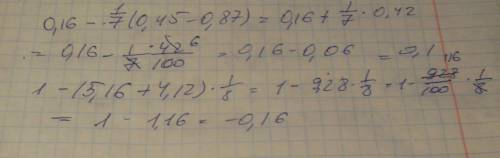 0,16 - 1/7 (0,45 - 0,87) = 0,16 + 1/7 · 0,42
= 0,16 - 1/7 · 42 6/100 = 0,16 - 0,06 = 0,1
1 - (5,16 + 4,12) · 1/8 = 1 - 9,28 · 1/8 = 1 - 928 116/100 · 1/8
= 1 - 1,16 = -0,16